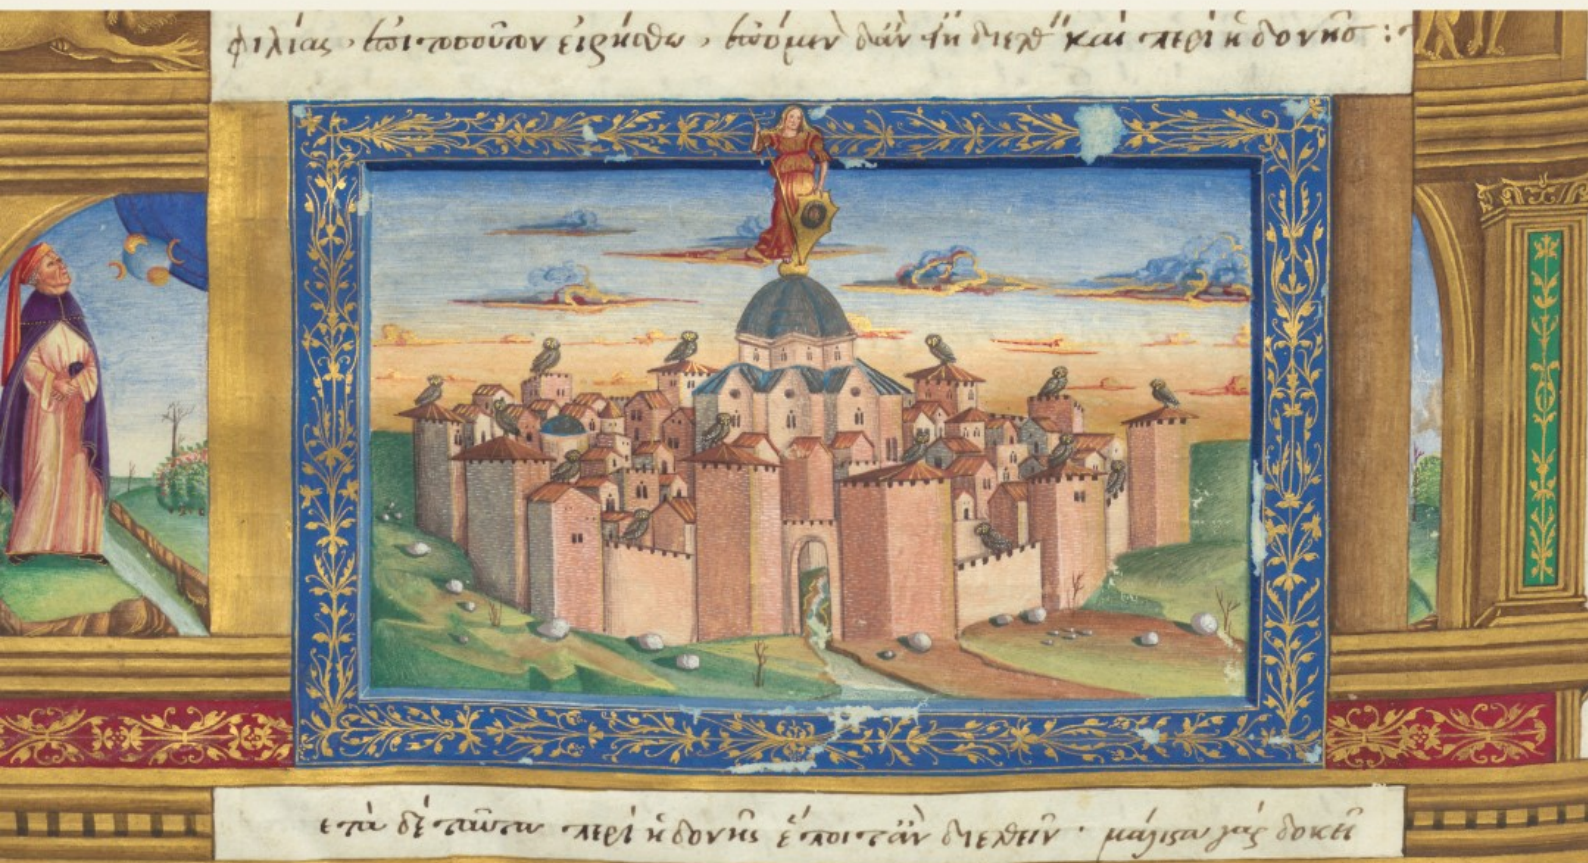 φιλίας · ἐπιτοσοῦτον εἰρήσθω · ἑπόμεν δ᾽ ἂν εἴη διελθ καὶ περὶ ἡδονῆς :~
ετὰ δὲ ταῦτα περὶ ἡδονῆς ἕποιτ᾽ ἂν διελθεῖν · μάλιστα γὰρ δοκεῖ